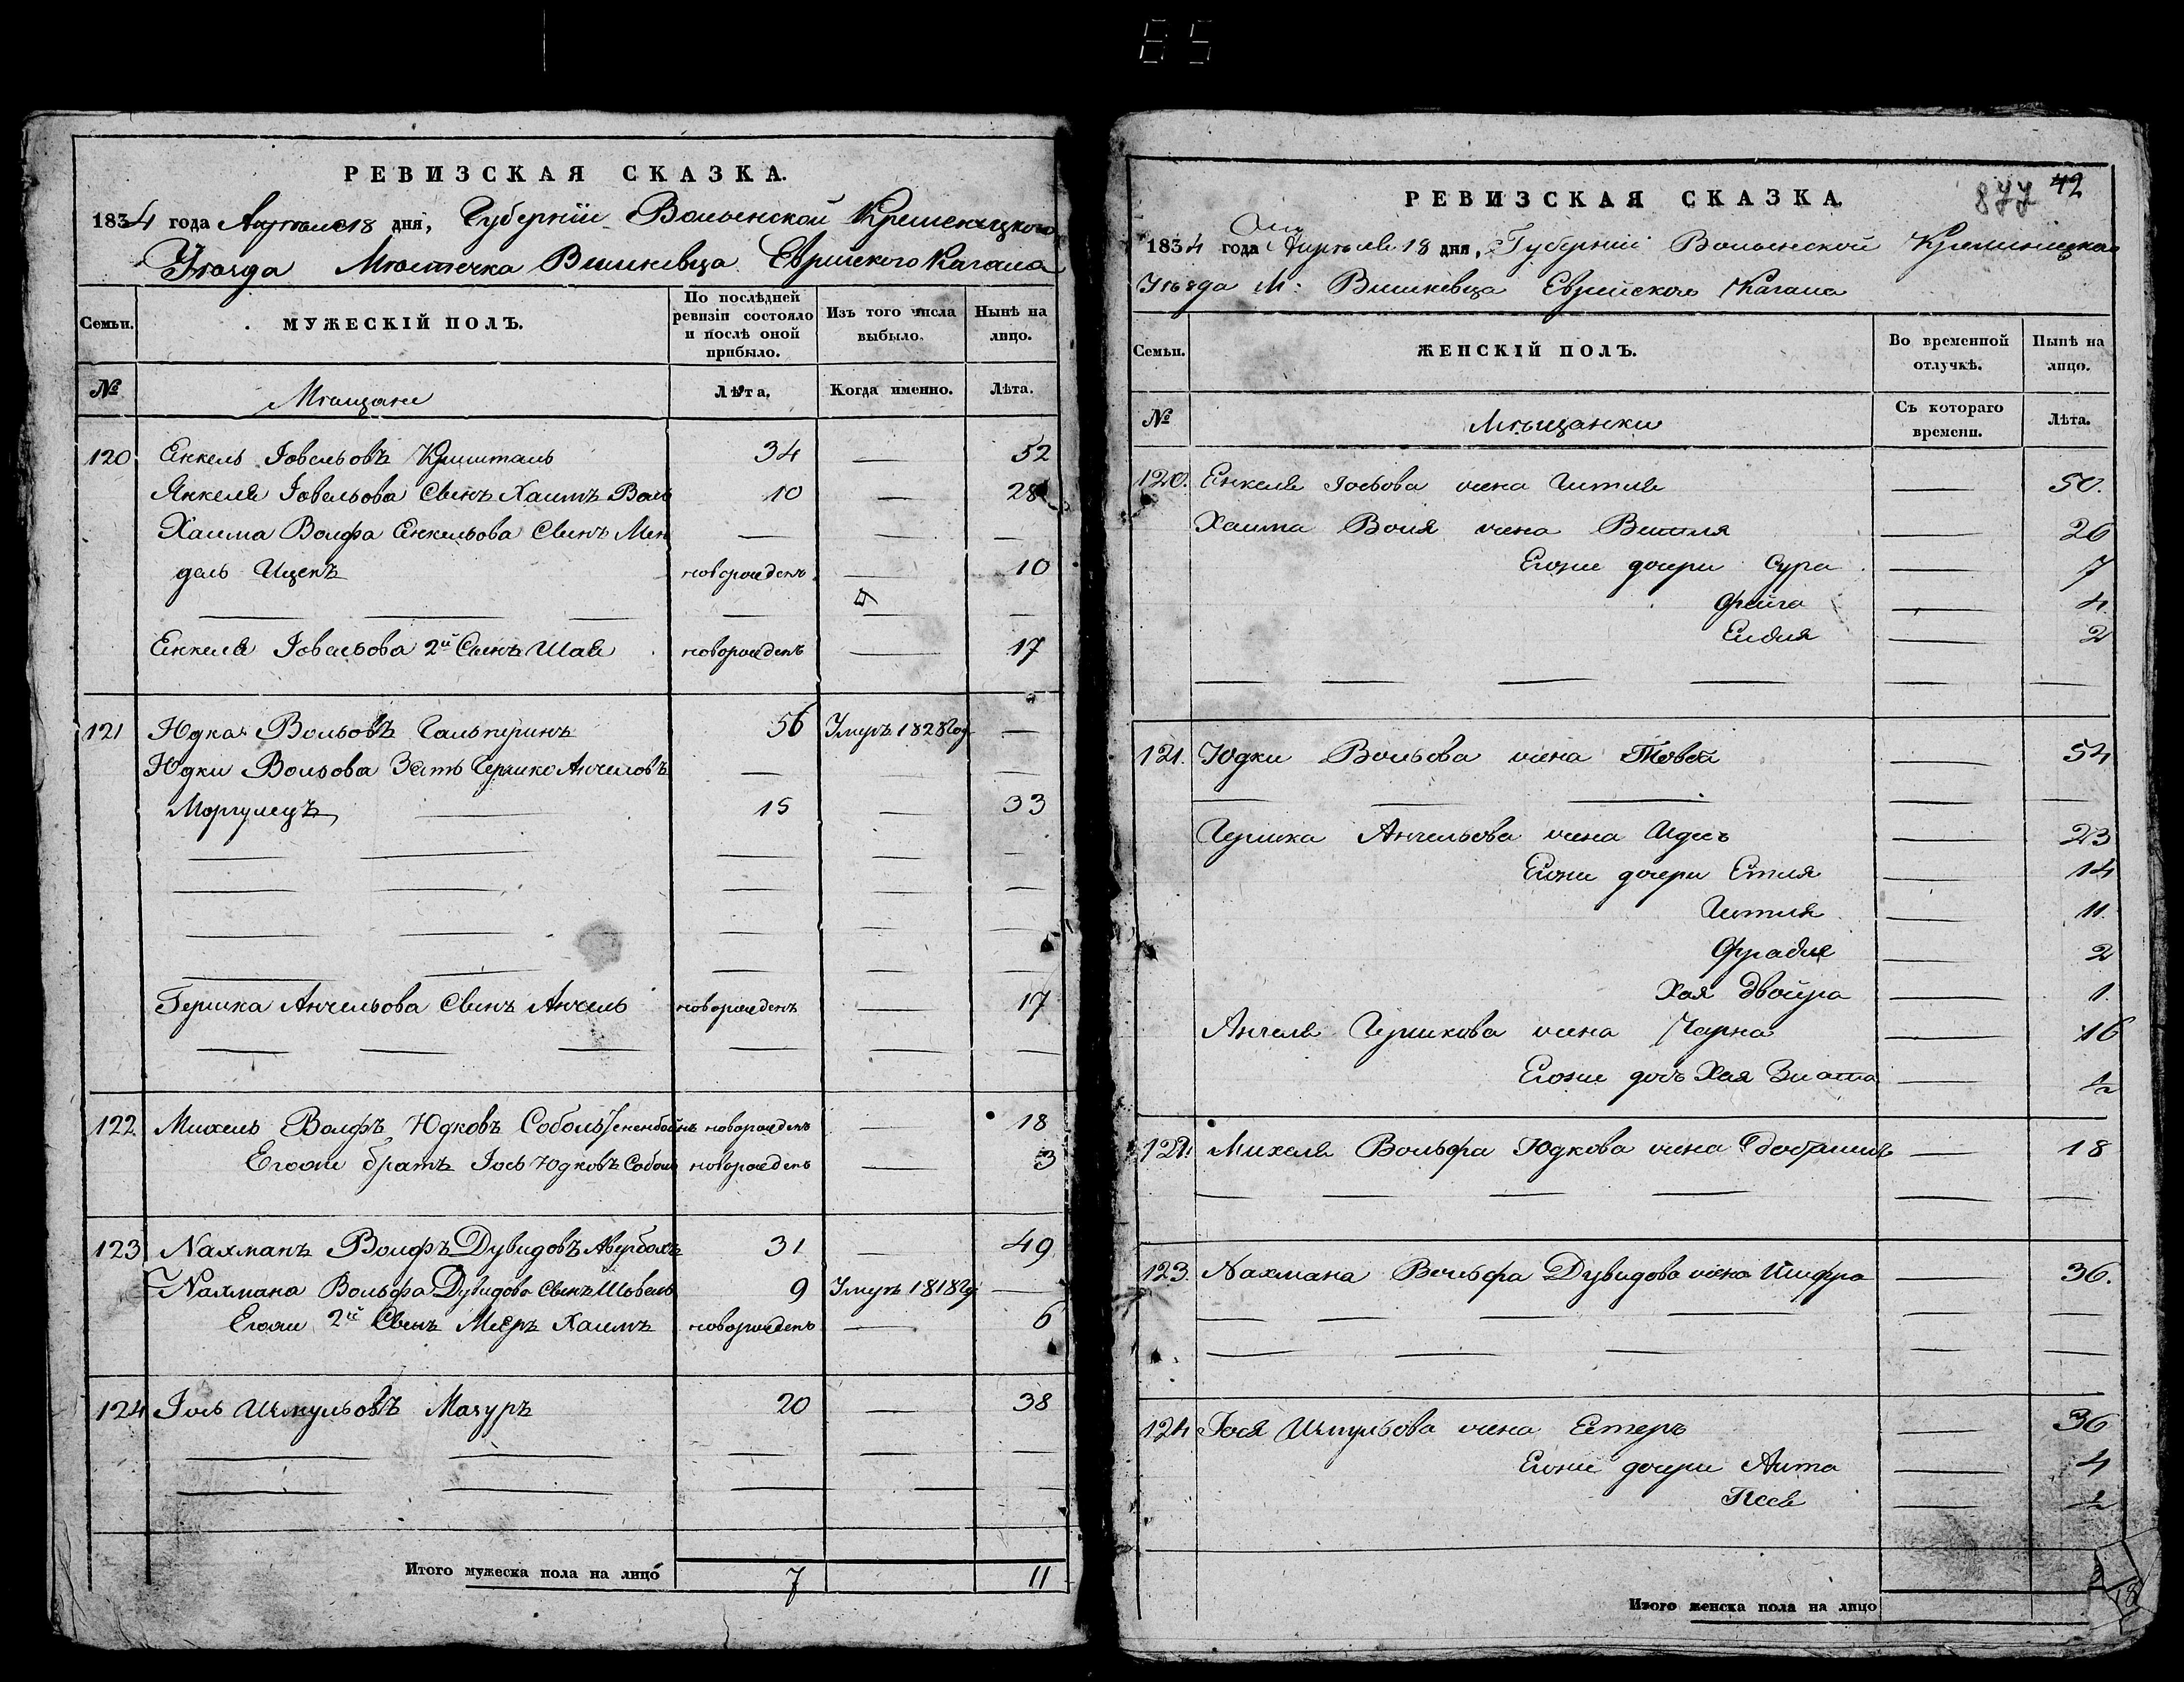 85
РЕВИЗСКАЯ СКАЗКА.
1834 года Апреля 18 дня, Губерніи Волынской Кременецкого
Уѣзда Мѣстечка Вишневца Еврейского Кагала
Семьи.
МУЖЕСКІЙ ПОЛЪ.
По послѣдней ревизіи состояло и послѣ оной прибыло.
Изъ того числа выбыло.
Нынѣ на лицо.
№
Мѣщане
Лѣта.
Когда именно.
Лѣта.
120 Енкель Іовельовъ Кришталь 34 — 52
Янкеля Іовельова Сынъ Хаимъ Воль 10 — 28
Хаима Волфа Енкельова Сынъ Мен — — —
дель Ицекъ новорожденъ — 10
Енкеля Іовельова 2й Сынъ Шая новорожденъ — 17
121 Юдка Вольовъ Гальперинъ 56 Умеръ 1828 Год. —
Юдки Вольова Зять Гершко Анчеловъ — —
Моргулецъ 15 — 33
Гершка Анчельова Сынъ Анчель новорожденъ — 17
122 Михель Волфъ Юдковъ Соболь новорожденъ — 18
Егоже братъ Іось Юдковъ Соболь новорожденъ — 3
123 Нахманъ Волфъ Дувидовъ Авербахъ 31 — 49
Нахмана Вольфа Дувидова Сынъ Шовель 9 Умеръ 1818 Го. —
Егоже 2й Сынъ Мееръ Хаимъ новорожденъ — 6
124 Іось Шмульовъ Мазуръ 20 — 38
Итого мужеска пола на лицо 7 11
877 42
РЕВИЗСКАЯ СКАЗКА.
1834 года Апрѣля 18 дня, Губерніи Волынской Кременецкаго
Уѣзда М: Вишневца Еврейского Кагала
Семьи.
ЖЕНСКІЙ ПОЛЪ.
Во временной отлучкѣ.
Нынѣ на лицо.
№
Мѣщанки
Съ котораго времени.
Лѣта.
120. Енкеля жена Гитля — 50.
Хаима Воля жена Витля — 26
Егоже дочери Сура — 7
Фейга — 4
— 2
121. Юдки Вольова жена Товба — 54
Гершка Анчельова жена Идесь — 23
Егоже дочери Етля — 14
Гитля — 11.
Фрадля — 2
Хая Двойра — 1.
Анчеля Гершкова жена Чарна — 16
Егоже дочь Хая Злата — ½
122. Михеля Вольфа Юдкова жена — 18
123. Нахмана Вольфа Дувидова жена Шифра — 36.
124. Іося Шмульова жена Естеръ — 36
Егоже дочери — 4
Песя — ½
Итого женска пола на лицо 18